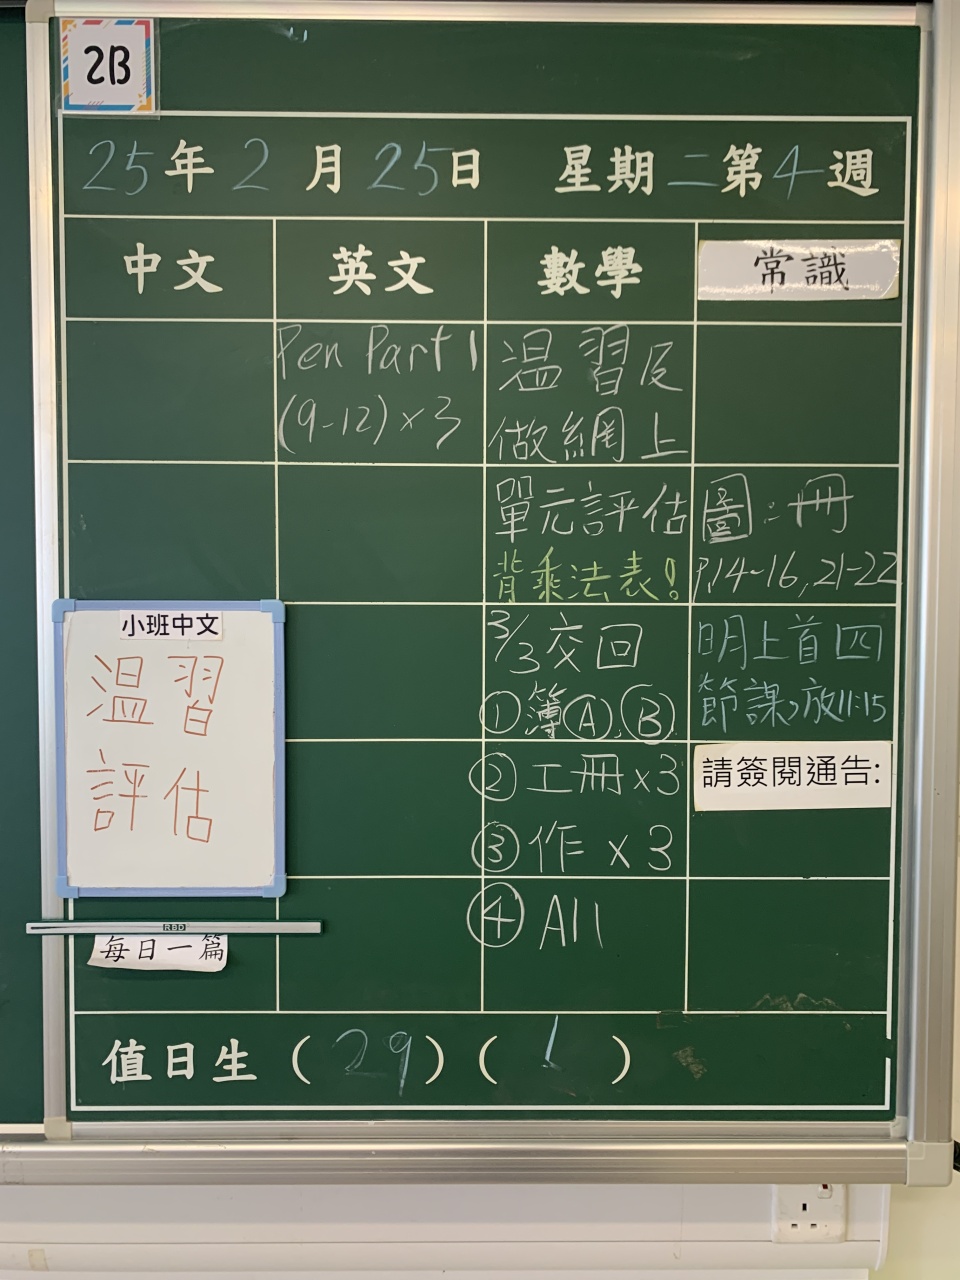 2B
25年2月25日 星期二第4週
中文 英文 數學 常識
Pen Part 1
(9-12)×3
溫習及
做網上
單元評估
背乘法表!
圖:冊
P.14-16,21-22
3/3交回
①簿Ⓐ,Ⓑ
②工冊×3
③作×3
④All
明上首四
節課,放11:15
請簽閱通告:
小班中文
溫習
評估
RBD
每日一篇
值日生(29)(1)